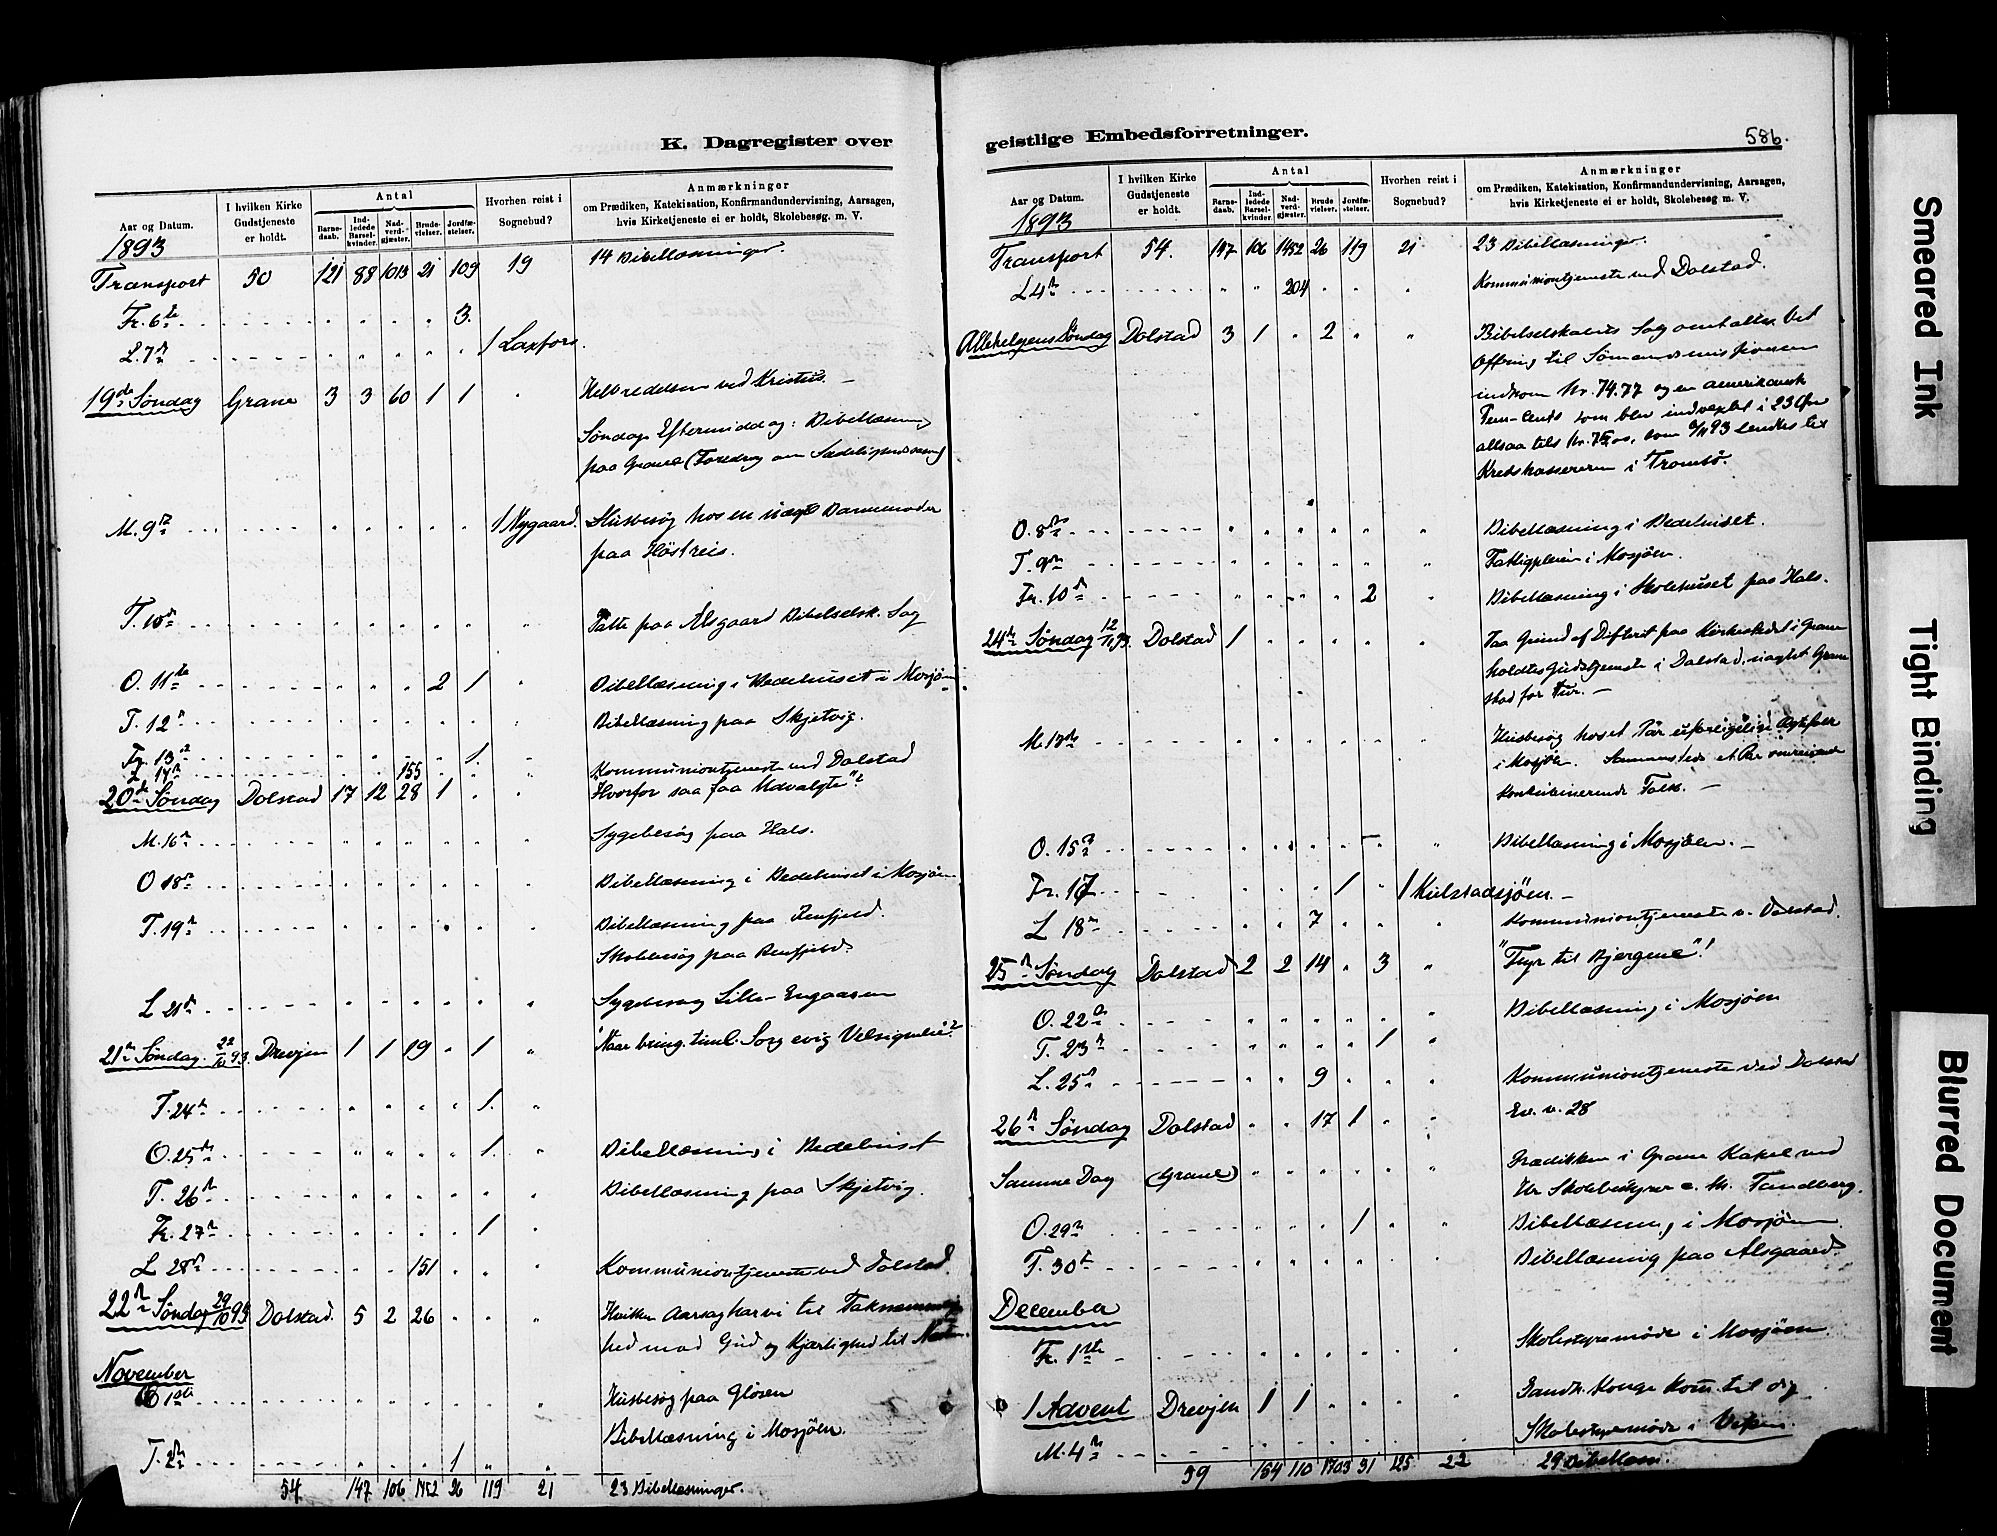 K. Dagregister over
Aar og Datum.
1893
I hvilken Kirke Gudstjeneste er holdt.
Antal
Barnedaab.
Indledede Barselkvinder.
Nadverdgjæster.
Brudevielser.
Jordfæstelser.
Hvorhen reist i Sognebud?
Anmærkninger
om Prædiken, Katekisation, Konfirmandundervisning, Aarsagen,
hvis Kirketjeneste ei er holdt, Skolebesøg. m. V.
Transport 50 121 88 1013 21 109 19 14 Bibellæsninger.
Fr. 6te 3.
L. 7de 1 Laxfors.
19de Søndag Grane 3 3 60 1 1 Helbredelsen ved Kristus. —
Søndags Eftermiddag: Bibellæsning
paa Grane (Foredrag om
M. 9de 1 Nygaard. Husbesøg hos en
paa Høstreis.
T. 10de paa Alsgaard Bibelselsk. Sag
O. 11te 2 1 Bibellæsning i Bedehuset i Mosjøen
T. 12te Bibellæsning paa Skjetvig.
Fr. 13de 1.
L. 14de 155 Kommuniontjeneste ved Dolstad
20de Søndag Dolstad 17 12 28 1 Hvorfor saa faa Udvalgte?
M. 16de Sygebesøg paa Hals.
O 18de Bibellæsning i Bedehuset i Mosjøen
T. 19de Bibellæsning paa Renfjeld.
Skolebesøg paa Renfjeld.
L 21de Sygebesøg Lille-Engaasen
21de Søndag 22/10 93. Drevjen 1 1 19 1 Naar bring. timl. Sorg evig Velsignelse?
T. 24de 1.
O. 25de 1. Bibellæsning i Bedehuset
T. 26de Bibellæsning paa Skjetvig.
Fr. 27de 1
L 28de 151 Kommuniontjeneste ved Dolstad.
22de Søndag 29/10 93 Dolstad. 5 2 26 Hvilken Aarsag har vi til Taknemmelig-
hed mod Gud og Kjærlighed til Næsten.
November
O 1ste Husbesøg paa Gløsen
Bibellæsning i Mosjøen.
T. 2den 1
54 147 106 1452 26 119 21 23 Bibellæsninger.
geistlige Embedsforretninger.
586.
Aar og Datum.
1893
I hvilken Kirke Gudstjeneste er holdt.
Antal
Barnedaab.
Indledede Barselkvinder.
Nadverdgjæster.
Brudevielser.
Jordfæstelser.
Hvorhen reist i Sognebud?
Anmærkninger
om Prædiken, Katekisation, Konfirmandundervisning, Aarsagen,
hvis Kirketjeneste ei er holdt, Skolebesøg m. V.
Transport 54. 147 106 1452 26 119 21 23 Bibellæsninger.
L 4de 204 Kommuniontjeneste ved Dolstad.
Allehelgens Søndag Dolstad 3 1 2 Bibelselskabets Sag omtaltes. Ved
Ofring til Sømandsmissionen
indkom Kr. 74.77 og en amerikansk
Fem-Cents som blev indvexlet i 23 Øre
altsaa tils Kr. 75.00, som 93 sendtes til
Kredskassereren i Tromsø.
O. 8de Bibellæsning i Bedehuset.
T. 9de Fattigpleien i Mosjøen.
Fr. 10de 2 Bibellæsning i Skolehuset paa Hals.
24de Søndag 12/11 93. Dolstad 1 Paa Grund af Difterit paa Kirkestedet i Grane
holdtes Gudstjeneste i Dolstad, uagtet Grane
stod for Tur. —
M. 13de Husbesøg hos et Par
i Mosjøen. Sammesteds et Par
konkubinerende Folk. —
O. 15de Bibellæsning i Mosjøen. —
Fr. 17 1 1 Kulstadsjøen. —
L 18de 7 Kommuniontjeneste v. Dolstad.
25de Søndag Dolstad 2 2 14 3 "Flyr til Bjergene"!
O. 22de Bibellæsning i Mosjøen
T. 23de 1
L. 25de 9 Kommuniontjeneste ved Dolstad
26de Søndag Dolstad 17 1 Ev. v. 28
Samme Dag (Grane) Prædiken i Grane Kapel ved
Hr Skolebestyrer c. th. Tandberg.
O. 29de 1 Bibellæsning i Mosjøen.
T. 30te Bibellæsning paa Alsgaard.
December
Fr. 1ste Skolestyremøde i Mosjøen.
1 Advent Drevjen 1 1 Sandh. Konge kom til dig
M. 4de Skolestyremøde i Vefsen.
59 154 110 1703 31 125 22 29 Bibellæsn.
Smeared Ink
Tight Binding
Blurred Document